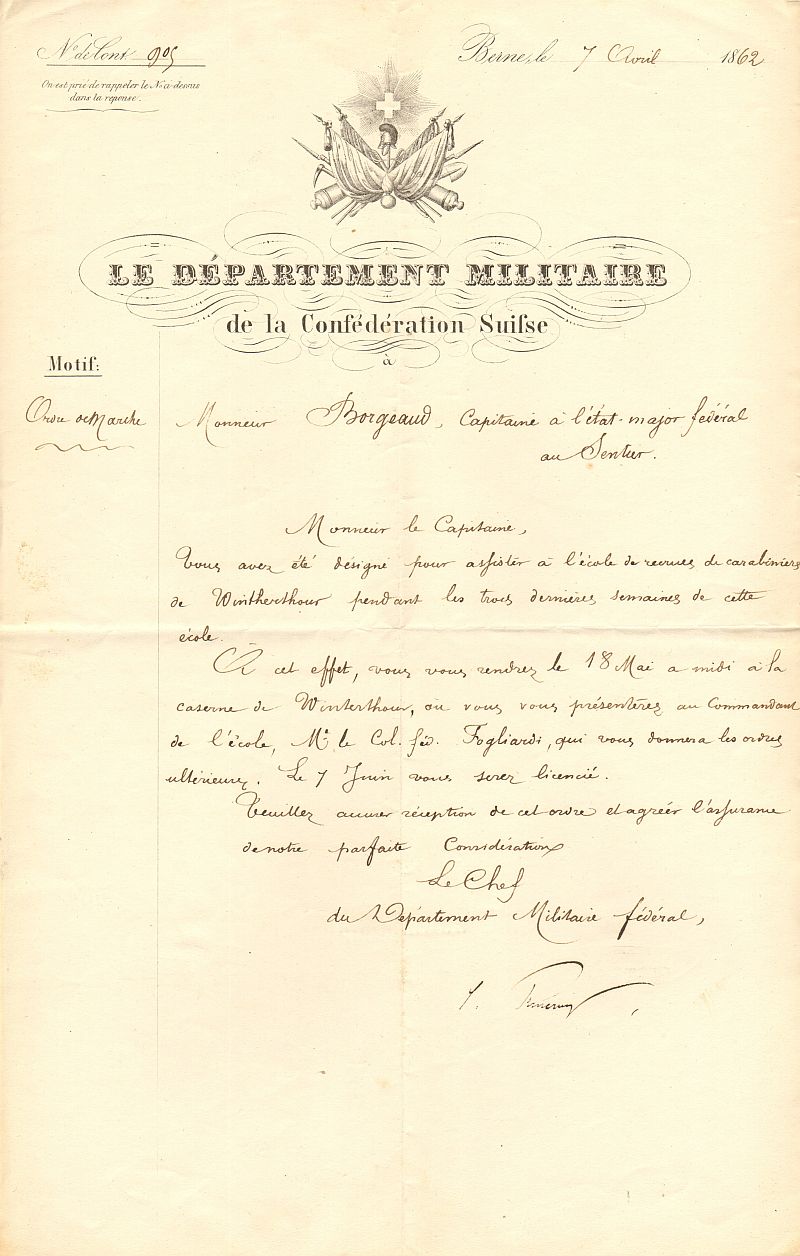 N.º de Cont. 905
On est prié de rappeler le N.º ci-dessus
dans la reponse.
Berne, le 7 Avril 1862
LE DÉPARTEMENT MILITAIRE
de la Confédération Suiſse
à
Motif:
Ordre de Marche
Monsieur Borgeaud, Capitaine à l'état-major fédéral
au Sentier.
Monsieur le Capitaine,
Vous avez été désigné pour aſsister à l'école de recrues de carabiniers
de Wintherthour pendant les trois dernières semaines de cette
école.
A cet effet, vous vous rendrez le 18 Mai a midi à la
caserne de Winterthour, où vous vous présenterez au Commandant
de l'école, Mr. le Col. féd. Fogliardi, qui vous donnera les ordres
ultérieurs. Le 7 Juin vous serez licencié.
Veuillez accuser réception de cet ordre et agréer l'aſsurance
de notre parfaite Considération
Le Chef
du Département Militaire fédéral,